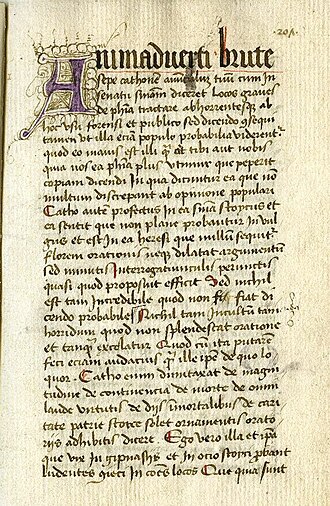 201
Animaduerti brute
sepe cathonẽ auũculũ tuũ cum in
senatu sñiam diceret Locos graues
de phĩa tractare abhorrentes ab
hoc usu forensi et publico sed dicendo ꝯsequi
tamen ut illa eciã populo probabilia viderent̃
quod eo maius est illi qᷓ aut tibi aut nobis
quia nos ea phĩa plus utimur que peperit
copiam dicendi In qua dicuntur ea que nõ
multum discrepant ab opinione populari
Catho autẽ profectus in ea sñia stoycus et
ea sentit que non plane probantur in vul
gus et est in ea heresi que nullũ sequit̃
florem orationis neqꝫ dilatat argumentũ
sed minutis Interrogatiunculis perunctis
quasi quod proposuit efficit Sed nichil
est tam incredibile quod non fiat di
cendo probabile Nichil tam Incultũ tam
horridum quod non splendescat oratione
et tanqᷓ excolatur Quod cũ ita putarem
feci eciam audacius qᷓ ille ipẽ de quo lo
quor Catho enim dumtaxat de magni
tudine de continencia de morte de omni
laude virtutis de dijs imortalibus de cari
tate patrie stoyce solet ornamentis orato
rijs adhibitis dicere Ego vero illa et ipã
que vix in gipnasijs et in ocio stoyci ꝓbant
ludentes ꝯieci in cões locos Que quia sunt